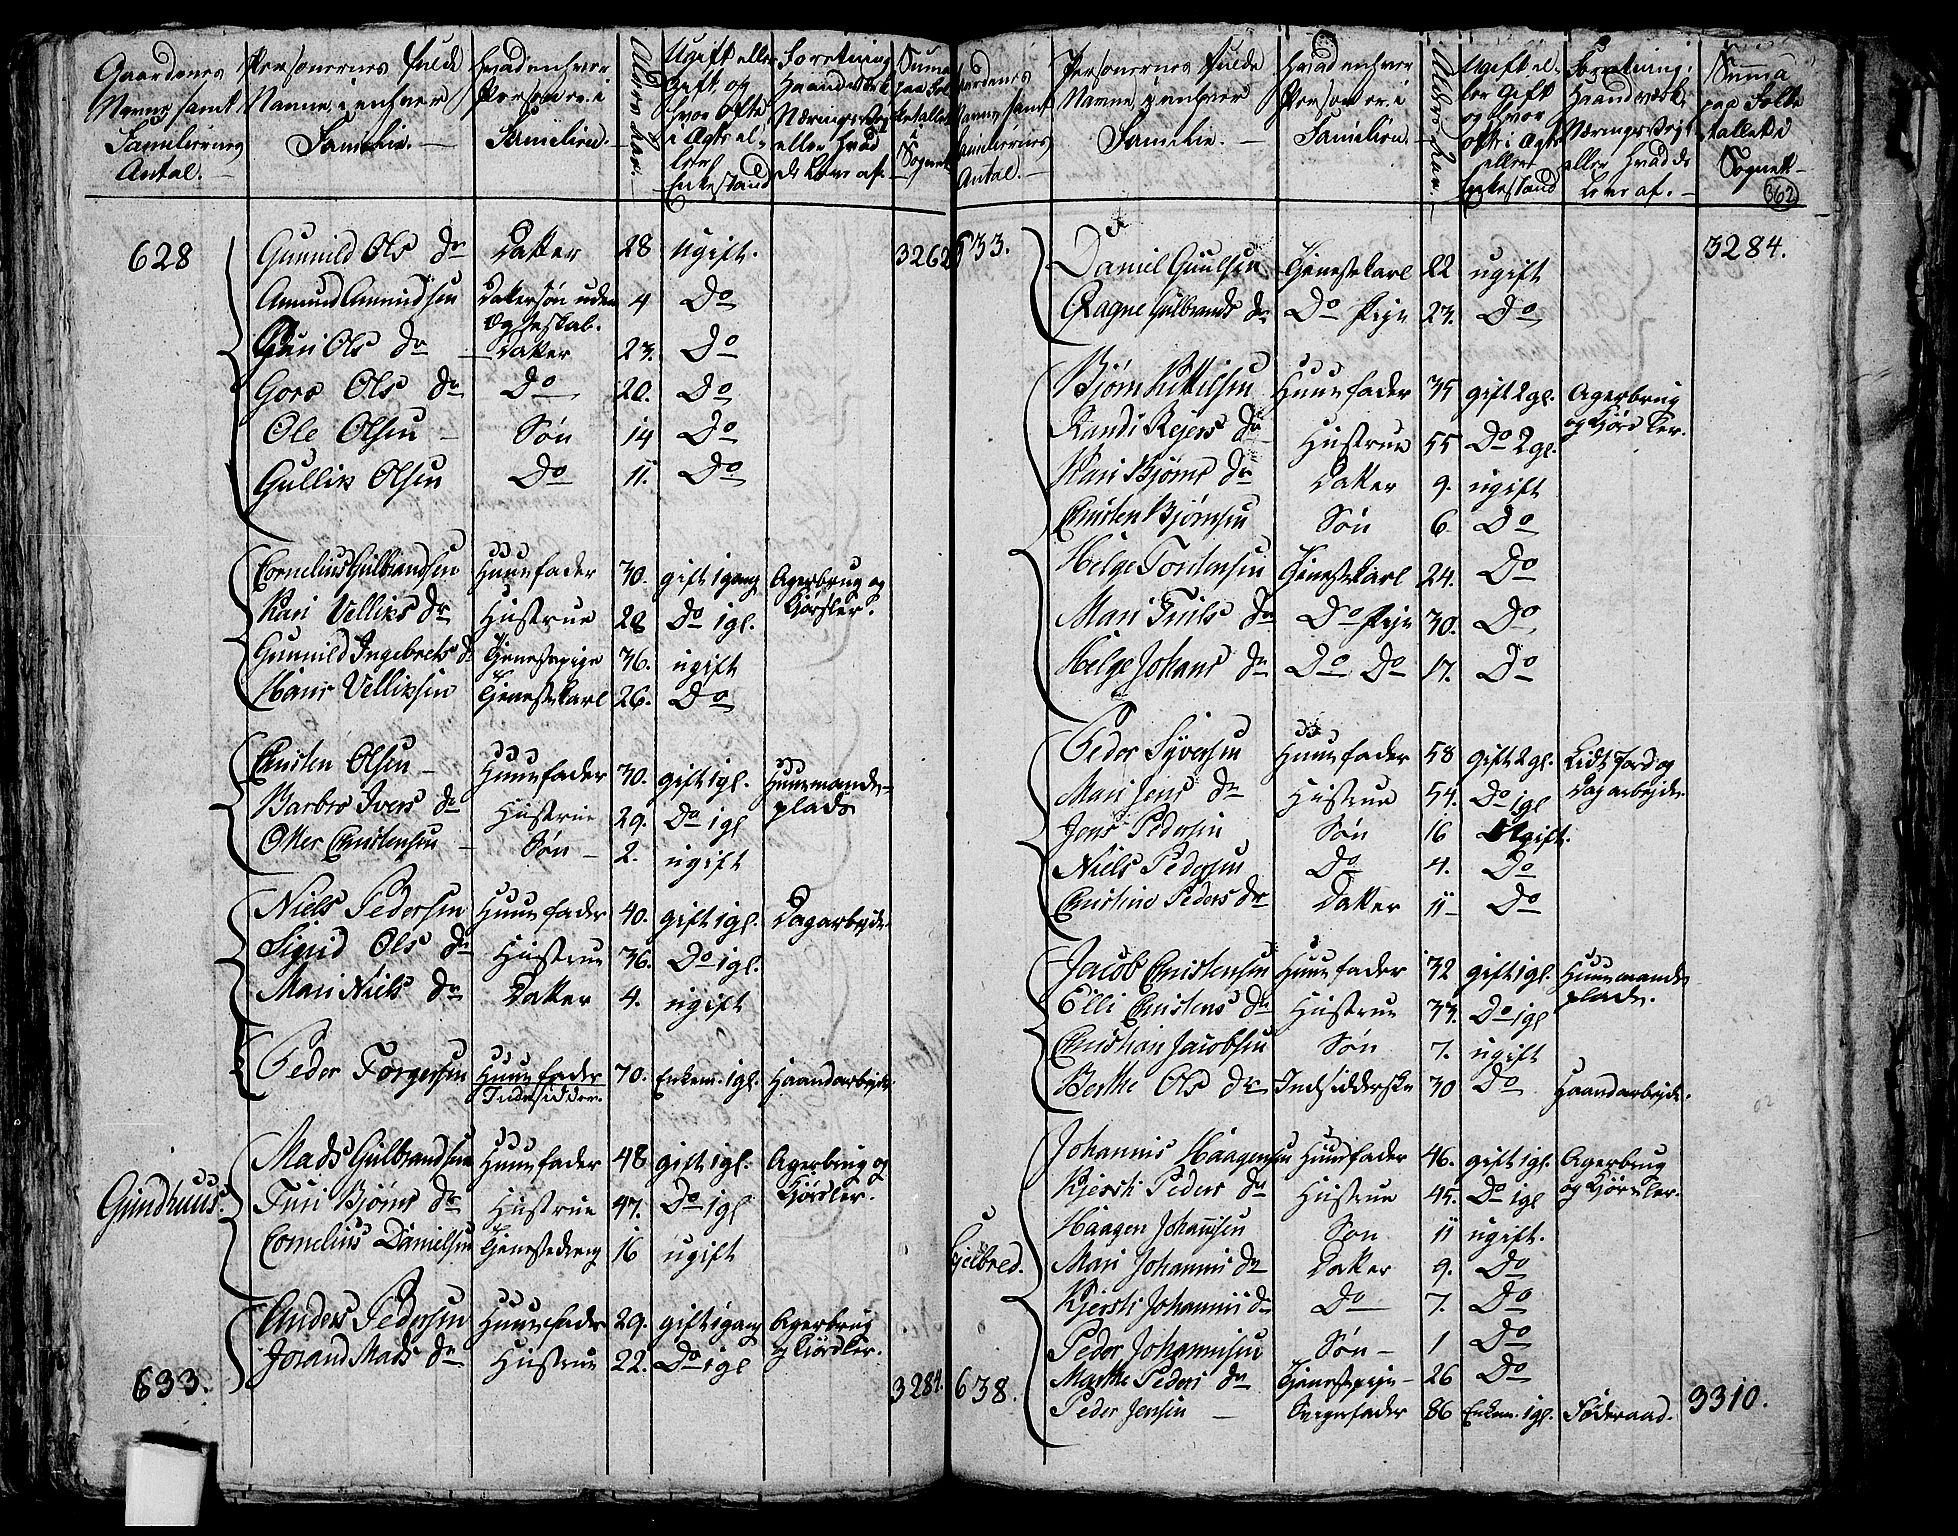 Gaardenes Navne samt Familiernes Antal. | Personernes fulde Navne i enhver Familie. | Hvad enhver Person er i Familien. | Alders Aar. | Ugift eller Gift, og hvor ofte i Ægte eller Enkestand | Forretning Haandværk Næringsvej eller hvad de lever af. | Suma paa Folketallet i Sognet
628 Gunnild Ols Dr Datter 28 ugift. 3262
Amund Amundsen Dattersøn uden Ægteskab. 4 Do
Guri Ols Dr Datter 23. Do
Goro Ols Dr Do 20. Do
Ole Olsen Søn 14 Do
Gullik Olsen Do 11. Do
Cornelius Gulbrandsen Huusfader 30. gift 1 gang Agerbrug og Kjørsler.
Kari Velliks Dr Hustrue 28 Do 1 gl.
Gunnild Ingebrets Dr Tjenestepige 36. ugift
Hans Velliksen Tjenestekarl 26. Do
Christen Olsen Huusfader 30. gift 1 gl. Huusmands-plads
Barbro Ivers Dr Hustrue 29. Do 1 gl
Otter Christensen Søn 2. ugift
Niels Pedersen Huusfader 40. gift 1 gl. Dagarbejde.
Sigrid Ols Dr Hustrue 36. Do 1 gl.
Mari Niels Dr Datter 4. ugift
Peder Torgersen Huusfader Inderster. 70. Enkem. 1 gl. Haandarbejde.
Mads Gulbrandsen Huusfader 48 gift 1 gl. Agerbrug og Kjørsler.
Gundhuus. Turi Bjørns Dr Hustrue 47. Do 1 gl
Cornelius Danielsen Tjenestedreng 16 ugift
Anders Pedersen Huusfader 29. gift 1 gang Agerbrug og Kiørsler.
Jorand Mads Dr Hustrue 22. Do 1 gl
633. 3284.
Gaardenes Navne samt Familiernes Antal. | Personernes fulde Navne i enhver Familie. | Hvad enhver Person er i Familien. | Alders Aar. | Ugift eller Gift og hvor ofte i Ægte eller Enkestand | Forretning Haandværk Næringsvej eller hvad de lever af. | Summa paa Folketallet i Sognet
362
633. Daniel Guulsen Tjenestekarl 22 ugift 3284.
Ragne Gulbrands Dr Do Pige 23. Do
Bjørn Kittilsen Huusfader 35 gift 2 gl. Agerbrug og Kjørsler.
Randi Rejers Dr Hustrue 55 Do 2 gl.
Kari Bjørns Dr Datter 9. ugift
Christen Bjørnsen Søn 6 Do
Helge Torstensen Tjenestekarl 24. Do
Mari Truls Dr Do Pige 30. Do
Helge Johans Dr Do Do 17. Do
Peder Syversen Huusfader 58 gift 2 gl. Lidt Jord og Dagarbejde.
Mari Jens Dr Hustrue 54. Do 1 gl
Jens Pedersen Søn 16 Ugift.
Niels Pedersen Do 4. Do
Christine Peders Dr Datter 11 Do
Jacob Christensen Huusfader 32 gift 1 gl. Huusmands plads.
Elli Christens Dr Hustrue 33. Do 1 gl
Christian Jacobsen Søn 7. ugift
Berthe Ols Dr Indsidderske 30 Do Haandarbejde.
Johannis Haagensen Huusfader 46. gift 1 gl. Agerbrug og Kjørsler.
Kjersti Peders Dr Hustrue 45. Do 1 gl
Haagen Johansen Søn 11 ugift.
Mari Johannis Dr Datter 9. Do
Kjersti Johannis Dr Do 7. Do
Peder Johannisen Søn 1 Do
Marthe Peders Dr Tjenestepige 26 Do
638. Peder Jensen Svigerfader 86 Enkem. 1 gl. Føderaad. 3310.